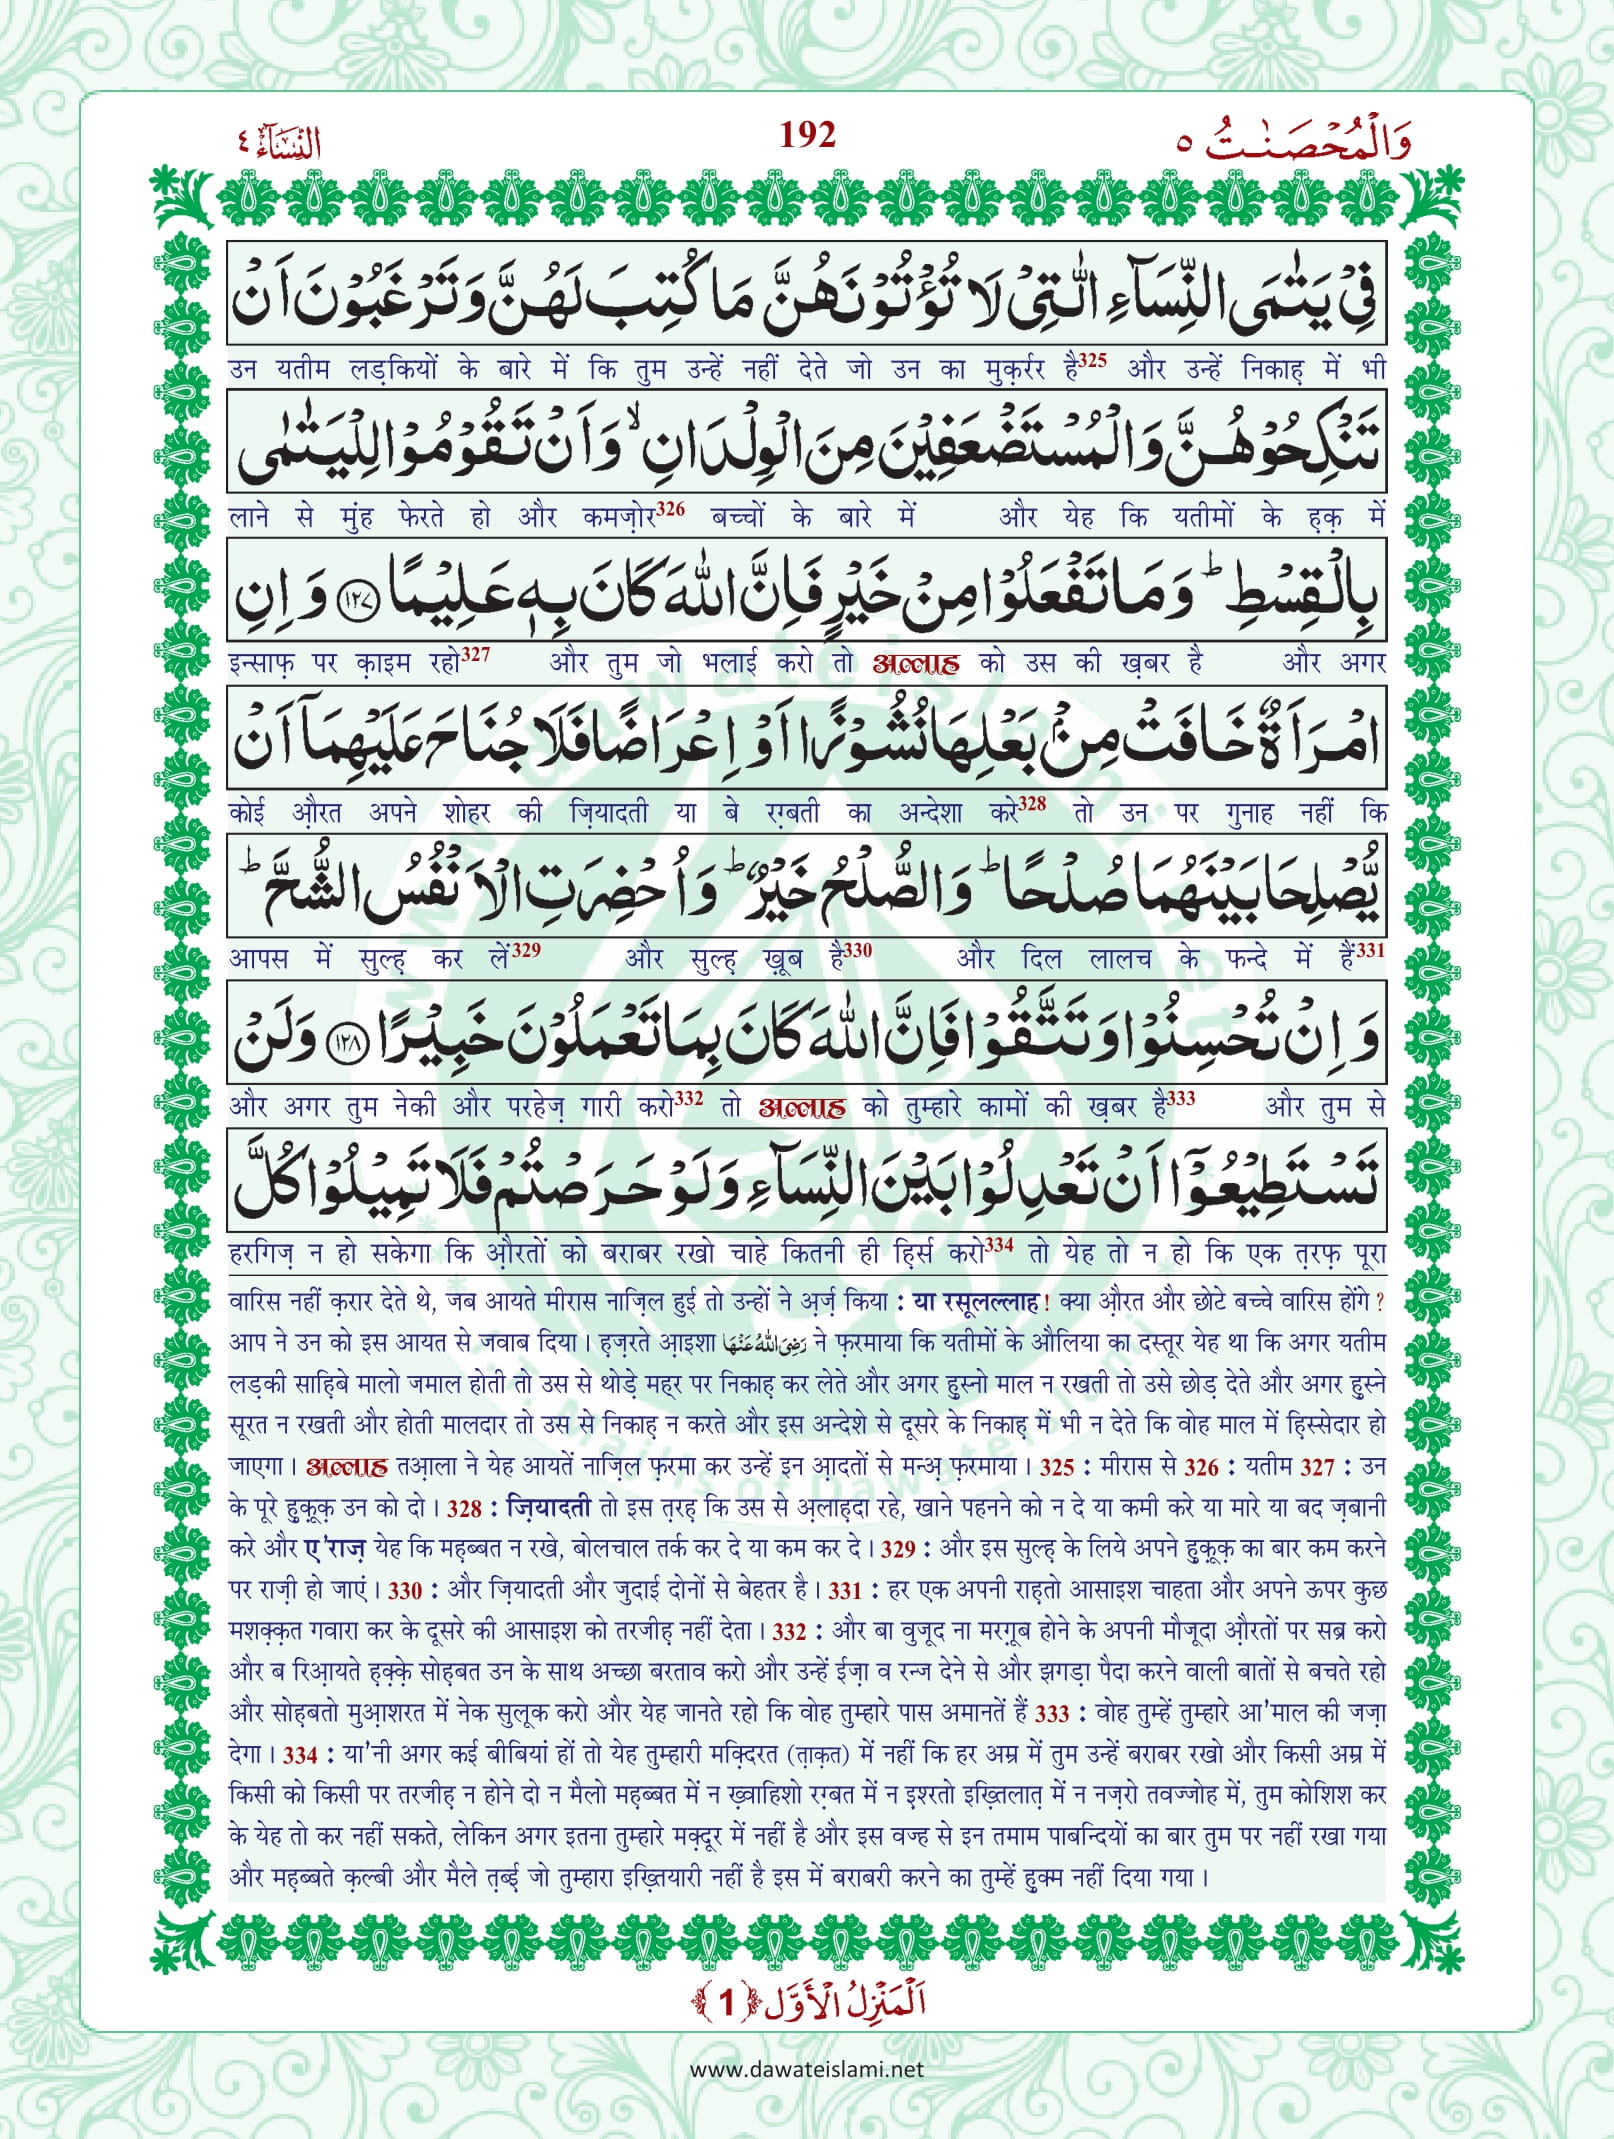 وَالْمُحْصَنٰتُ ٥
192
النِّسَآءِ ٤
فِیْ یَتٰمَی النِّسَآءِ الّٰتِیْ لَا تُؤْتُوْنَهُنَّ مَا كُتِبَ لَهُنَّ وَ تَرْغَبُوْنَ اَنْ
उन यतीम लड़कियों के बारे में कि तुम उन्हें नहीं देते जो उन का मुक़र्रर है325 और उन्हें निकाह़ में भी
تَنْكِحُوْهُنَّ وَ الْمُسْتَضْعَفِیْنَ مِنَ الْوِلْدَانِۙ وَ اَنْ تَقُوْمُوْا لِلْیَتٰمٰى
लाने से मुंह फेरते हो और कमज़ोर326 बच्चों के बारे में और येह कि यतीमों के ह़क़ में
بِالْقِسْطِؕ وَ مَا تَفْعَلُوْا مِنْ خَیْرٍ فَاِنَّ اللّٰهَ كَانَ بِهٖ عَلِیْمًا ﴿۱۲۷﴾ وَ اِنِ
इन्साफ़ पर क़ाइम रहो327 और तुम जो भलाई करो तो अल्लाह को उस की ख़बर है और अगर
امْرَاَةٌ خَافَتْ مِنْۢ بَعْلِهَا نُشُوْزًا اَوْ اِعْرَاضًا فَلَا جُنَاحَ عَلَیْهِمَاۤ اَنْ
कोई औ़रत अपने शोहर की ज़ियादती या बे रग़्बती का अन्देशा करे328 तो उन पर गुनाह नहीं कि
یُّصْلِحَا بَیْنَهُمَا صُلْحًاؕ وَ الصُّلْحُ خَیْرٌؕ وَ اُحْضِرَتِ الْاَنْفُسُ الشُّحَّؕ
आपस में सुल्ह़ कर लें329 और सुल्ह़ ख़ूब है330 और दिल लालच के फन्दे में हैं331
وَ اِنْ تُحْسِنُوْا وَ تَتَّقُوْا فَاِنَّ اللّٰهَ كَانَ بِمَا تَعْمَلُوْنَ خَبِیْرًا ﴿۱۲۸﴾ وَ لَنْ
और अगर तुम नेकी और परहेज़ गारी करो332 तो अल्लाह को तुम्हारे कामों की ख़बर है333 और तुम से
تَسْتَطِیْعُوْۤا اَنْ تَعْدِلُوْا بَیْنَ النِّسَآءِ وَ لَوْ حَرَصْتُمْ فَلَا تَمِیْلُوْا كُلَّ
हरगिज़ न हो सकेगा कि औ़रतों को बराबर रखो चाहे कितनी ही ह़िर्स करो334 तो येह तो न हो कि एक त़रफ़ पूरा
वारिस नहीं क़रार देते थे, जब आयते मीरास नाज़िल हुई तो उन्हों ने अ़र्ज़ किया : या रसूलल्लाह! क्या औ़रत और छोटे बच्चे वारिस होंगे ?
आप ने उन को इस आयत से जवाब दिया। ह़ज़रते आ़इशा رَضِیَ اللّٰهُ عَنْهَا ने फ़रमाया कि यतीमों के औलिया का दस्तूर येह था कि अगर यतीम
लड़की साह़िबे मालो जमाल होती तो उस से थोड़े महर पर निकाह़ कर लेते और अगर हु़स्नो माल न रखती तो उसे छोड़ देते और अगर हु़स्ने
सूरत न रखती और होती मालदार तो उस से निकाह़ न करते और इस अन्देशे से दूसरे के निकाह़ में भी न देते कि वोह माल में हिस्सेदार हो
जाएगा। अल्लाह तआ़ला ने येह आयतें नाज़िल फ़रमा कर उन्हें इन आ़दतों से मन्अ़ फ़रमाया। 325 : मीरास से 326 : यतीम 327 : उन
के पूरे हु़क़ूक़ उन को दो। 328 : ज़ियादती तो इस त़रह़ कि उस से अ़लाह़दा रहे, खाने पहनने को न दे या कमी करे या मारे या बद ज़बानी
करे और ए'राज़ येह कि मह़ब्बत न रखे, बोलचाल तर्क कर दे या कम कर दे। 329 : और इस सुल्ह़ के लिये अपने हु़क़ूक़ का बार कम करने
पर राज़ी हो जाएं। 330 : और ज़ियादती और जुदाई दोनों से बेहतर है। 331 : हर एक अपनी राह़तो आसाइश चाहता और अपने ऊपर कुछ
मशक़्क़त गवारा कर के दूसरे की आसाइश को तरजीह़ नहीं देता। 332 : और बा वुजूद ना मरग़ूब होने के अपनी मौजूदा औ़रतों पर सब्र करो
और ब रिआ़यते ह़क़्के़ सोह़बत उन के साथ अच्छा बरताव करो और उन्हें ईज़ा व रन्ज देने से और झगड़ा पैदा करने वाली बातों से बचते रहो
और सोह़बतो मुआ़शरत में नेक सुलूक करो और येह जानते रहो कि वोह तुम्हारे पास अमानतें हैं 333 : वोह तुम्हें तुम्हारे आ'माल की जज़ा
देगा। 334 : या'नी अगर कई बीबियां हों तो येह तुम्हारी मक़्दिरत (त़ाक़त) में नहीं कि हर अम्र में तुम उन्हें बराबर रखो और किसी अम्र में
किसी को किसी पर तरजीह़ न होने दो न मैलो मह़ब्बत में न ख़्वाहिशो रग़्बत में न इ़श्रतो इख़्तिलात़ में न नज़रो तवज्जोह में, तुम कोशिश कर
के येह तो कर नहीं सकते, लेकिन अगर इतना तुम्हारे मक़्दूर में नहीं है और इस वज्ह से इन तमाम पाबन्दियों का बार तुम पर नहीं रखा गया
और मह़ब्बते क़ल्बी और मैले त़ब्ई़ जो तुम्हारा इख़्तियारी नहीं है इस में बराबरी करने का तुम्हें हु़क्म नहीं दिया गया।
اَلْمَنْزِلُ الْاَوَّل ﴿1﴾
www.dawateislami.net